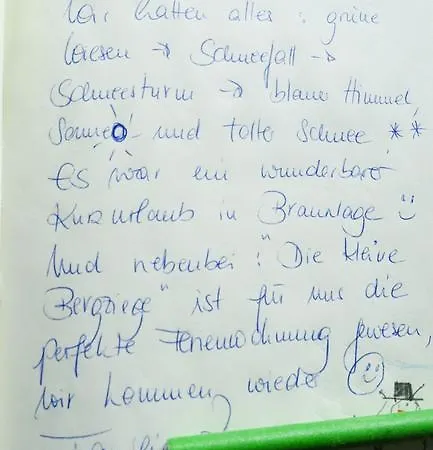 Wir hatten alles : grüne
Wiesen → Schneefall →
Schneesturm → blauer Himmel,
Sonne und toller Schnee * *
Es war ein wunderbarer
Kurzurlaub in Braunlage ☺
Und nebenbei : "Die kleine
Bergziege" ist für uns die
perfekte Ferienwohnung gewesen,
wir kommen wieder ☺